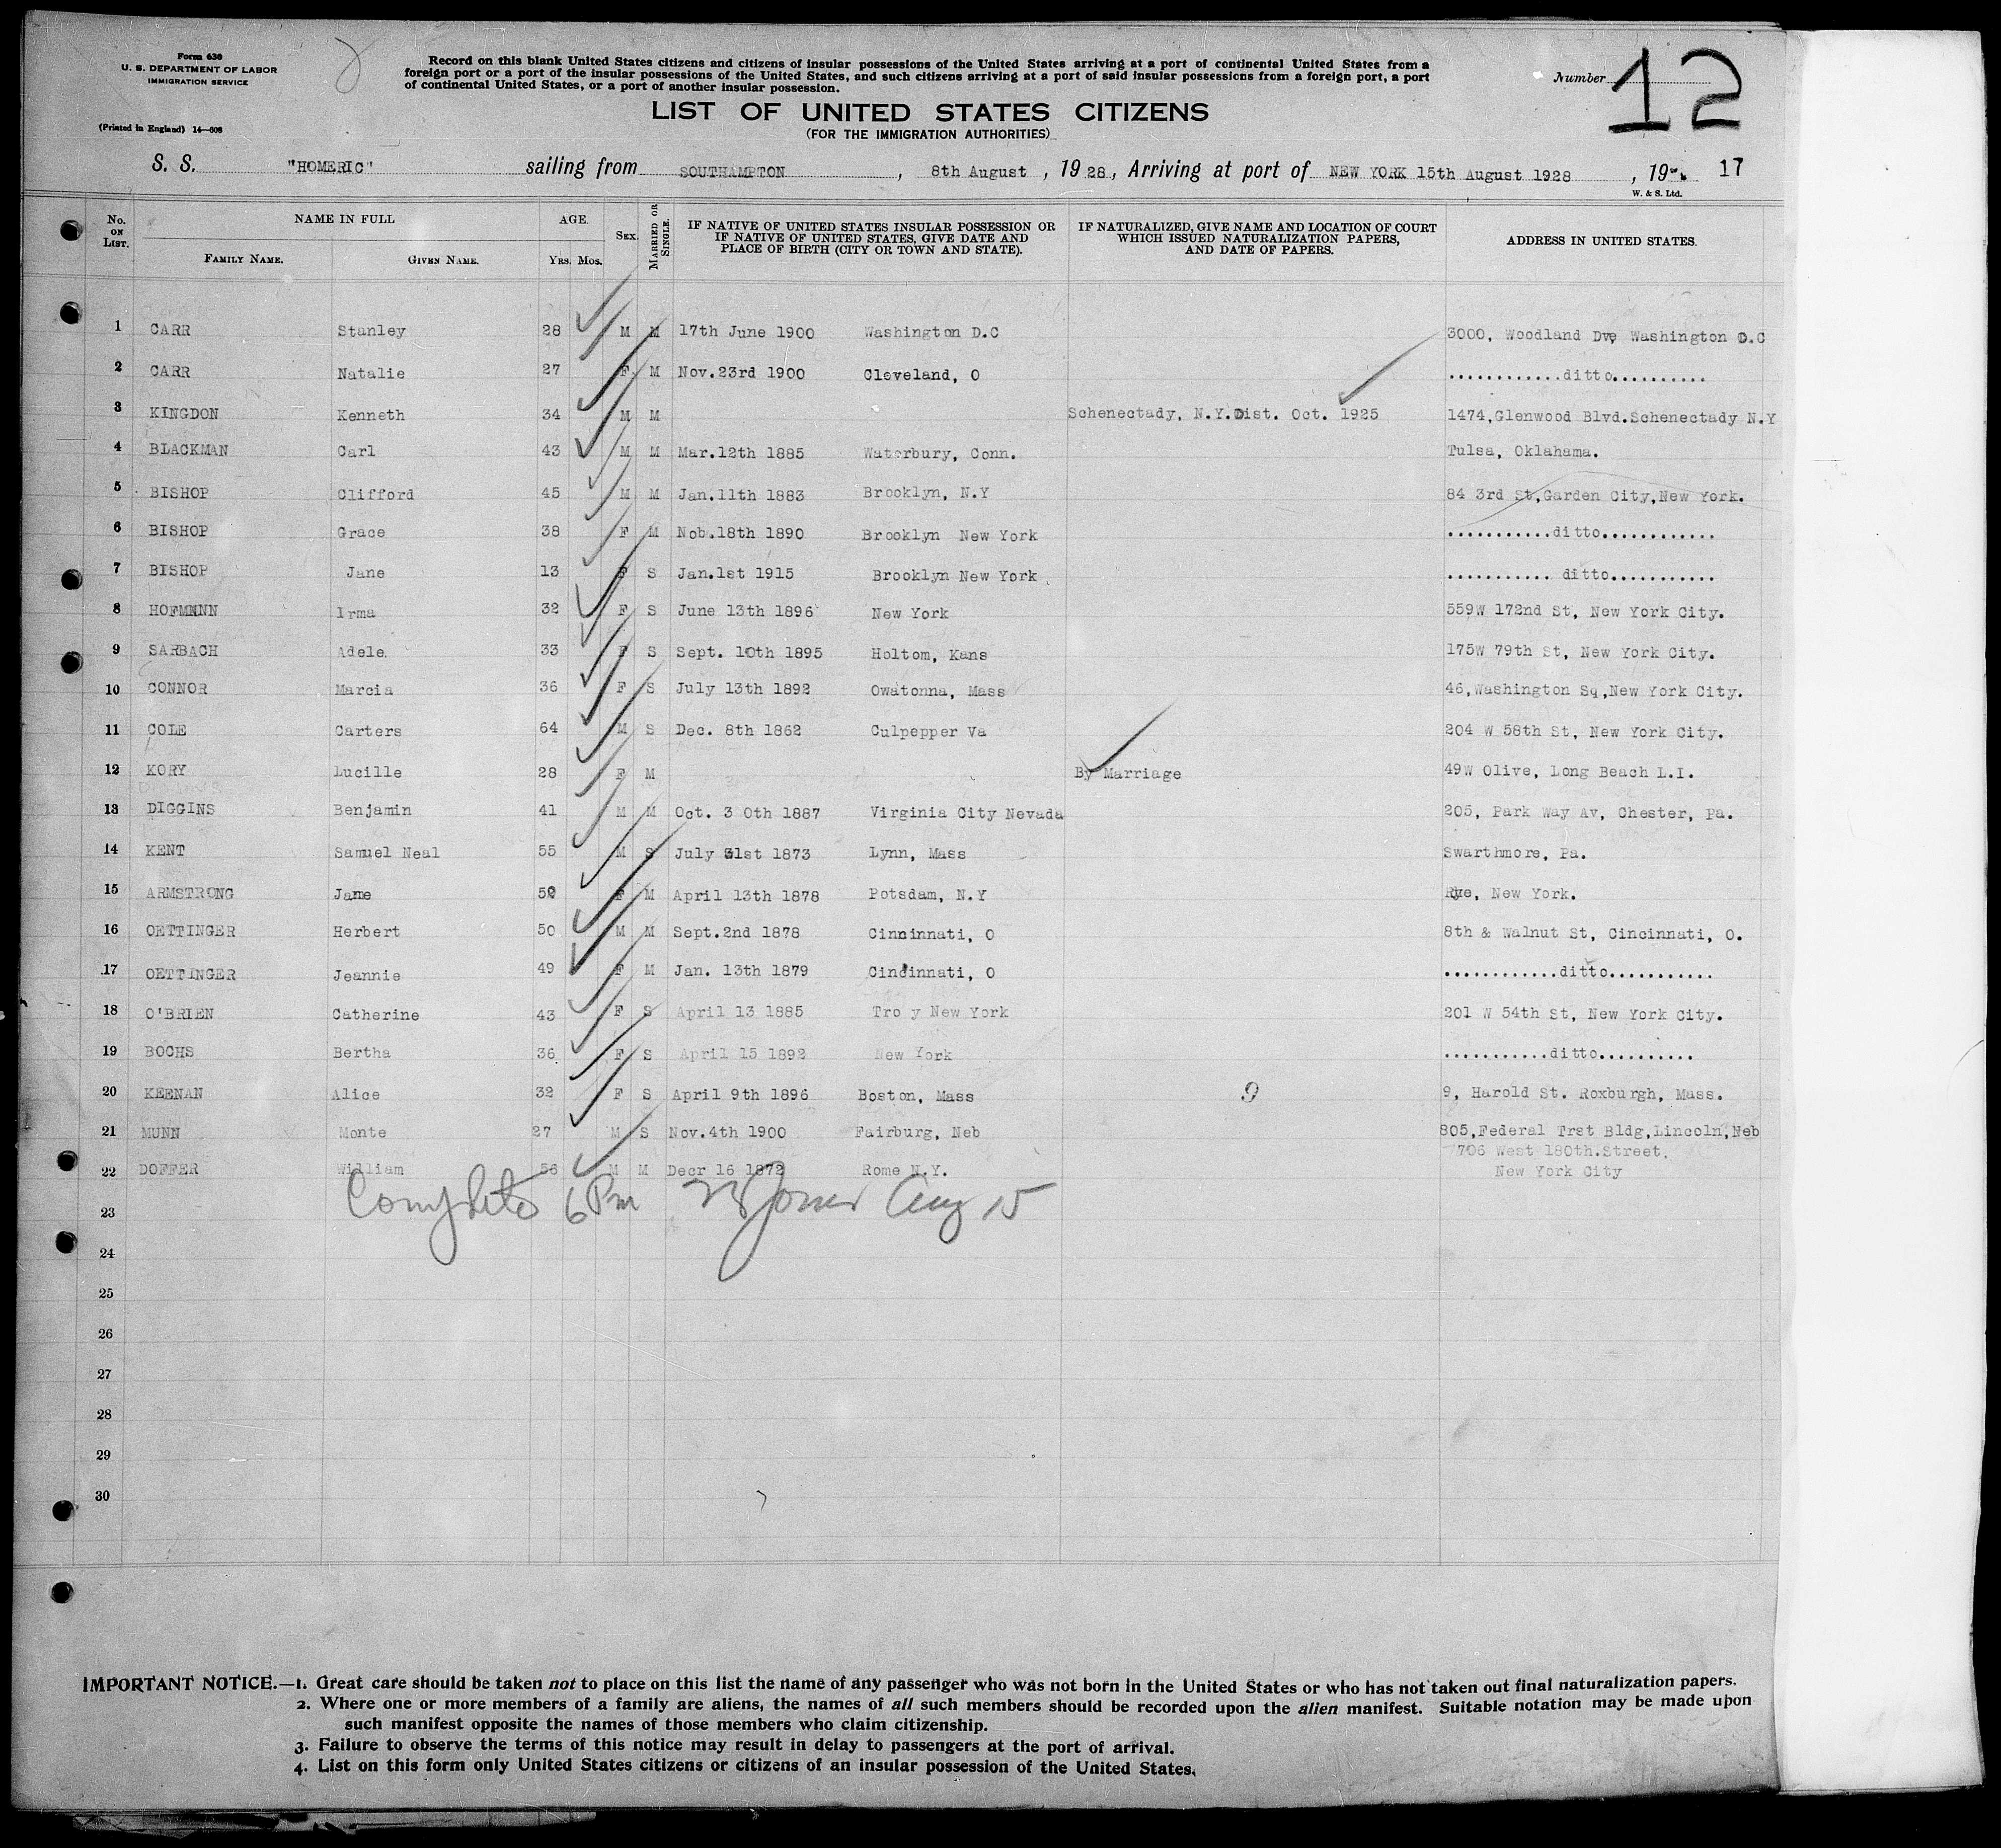 Form 630
U. S. DEPARTMENT OF LABOR
IMMIGRATION SERVICE
(Printed in England) 14—608
Record on this blank United States citizens and citizens of insular possessions of the United States arriving at a port of continental United States from a
foreign port or a port of the insular possessions of the United States, and such citizens arriving at a port of said insular possessions from a foreign port, a port
of continental United States, or a port of another insular possession.
Number 12
LIST OF UNITED STATES CITIZENS
(FOR THE IMMIGRATION AUTHORITIES)
S. S. "HOMERIC" sailing from SOUTHAMPTON, 8th August, 1928, Arriving at port of NEW YORK 15th August 1928, 19 17
W. & S. Ltd.
No. ON LIST. NAME IN FULL FAMILY NAME. GIVEN NAME. AGE. YRS. MOS. SEX. MARRIED OR SINGLE. IF NATIVE OF UNITED STATES INSULAR POSSESSION OR IF NATIVE OF UNITED STATES, GIVE DATE AND PLACE OF BIRTH (CITY OR TOWN AND STATE). IF NATURALIZED, GIVE NAME AND LOCATION OF COURT WHICH ISSUED NATURALIZATION PAPERS, AND DATE OF PAPERS. ADDRESS IN UNITED STATES.
1 CARR Stanley 28 M M 17th June 1900 Washington D.C 3000, Woodland Dve Washington D.C
2 CARR Natalie 27 F M Nov.23rd 1900 Cleveland, O ............ditto..........
3 KINGDON Kenneth 34 M M Schenectady, N.Y.Dist. Oct. 1925 1474,Glenwood Blvd.Schenectady N.Y
4 BLACKMAN Carl 43 M M Mar.12th 1885 Waterbury, Conn. Tulsa, Oklahoma.
5 BISHOP Clifford 45 M M Jan.11th 1883 Brooklyn, N.Y 84 3rd St,Garden City,New York.
6 BISHOP Grace 38 F M Nob.18th 1890 Brooklyn New York ...........ditto............
7 BISHOP Jane 13 F S Jan.1st 1915 Brooklyn New York ........... ditto...........
8 HOFMNNN Irma 32 F S June 13th 1896 New York 559W 172nd St, New York City.
9 SARBACH Adele 33 F S Sept. 10th 1895 Holtom, Kans 175W 79th St, New York City.
10 CONNOR Marcia 36 F S July 13th 1892 Owatonna, Mass 46,Washington Sq,New York City.
11 COLE Carters 64 M S Dec. 8th 1862 Culpepper Va 204 W 58th St, New York City.
12 KORY Lucille 28 F M By Marriage 49W Olive, Long Beach L.I.
13 DIGGINS Benjamin 41 M M Oct. 3 0th 1887 Virginia City Nevada 205, Park Way Av, Chester, Pa.
14 KENT Samuel Neal 55 M S July 31st 1873 Lynn, Mass Swarthmore, Pa.
15 ARMSTRONG Jane 50 F M April 13th 1878 Potsdam, N.Y Rye, New York.
16 OETTINGER Herbert 50 M M Sept.2nd 1878 Cincinnati, O 8th & Walnut St, Cincinnati, O.
17 OETTINGER Jeannie 49 F M Jan. 13th 1879 Cincinnati, O ............ditto...........
18 O'BRIEN Catherine 43 F S April 13 1885 Tro y New York 201 W 54th St, New York City.
19 BOCHS Bertha 36 F S April 15 1892 New York ...........ditto..........
20 KEENAN Alice 32 F S April 9th 1896 Boston, Mass 9 9, Harold St. Roxburgh, Mass.
21 MUNN Monte 27 M S Nov.4th 1900 Fairburg, Neb 805,Federal Trst Bldg,Lincoln,Neb
22 DOFFER William 56 M M Decr 16 1872 Rome N.Y. 706 West 180th.Street, New York City
Complete 6 Pm Jones Aug 15
23
24
25
26
27
28
29
30
IMPORTANT NOTICE.—1. Great care should be taken not to place on this list the name of any passenger who was not born in the United States or who has not taken out final naturalization papers.
2. Where one or more members of a family are aliens, the names of all such members should be recorded upon the alien manifest. Suitable notation may be made upon
such manifest opposite the names of those members who claim citizenship.
3. Failure to observe the terms of this notice may result in delay to passengers at the port of arrival.
4. List on this form only United States citizens or citizens of an insular possession of the United States.